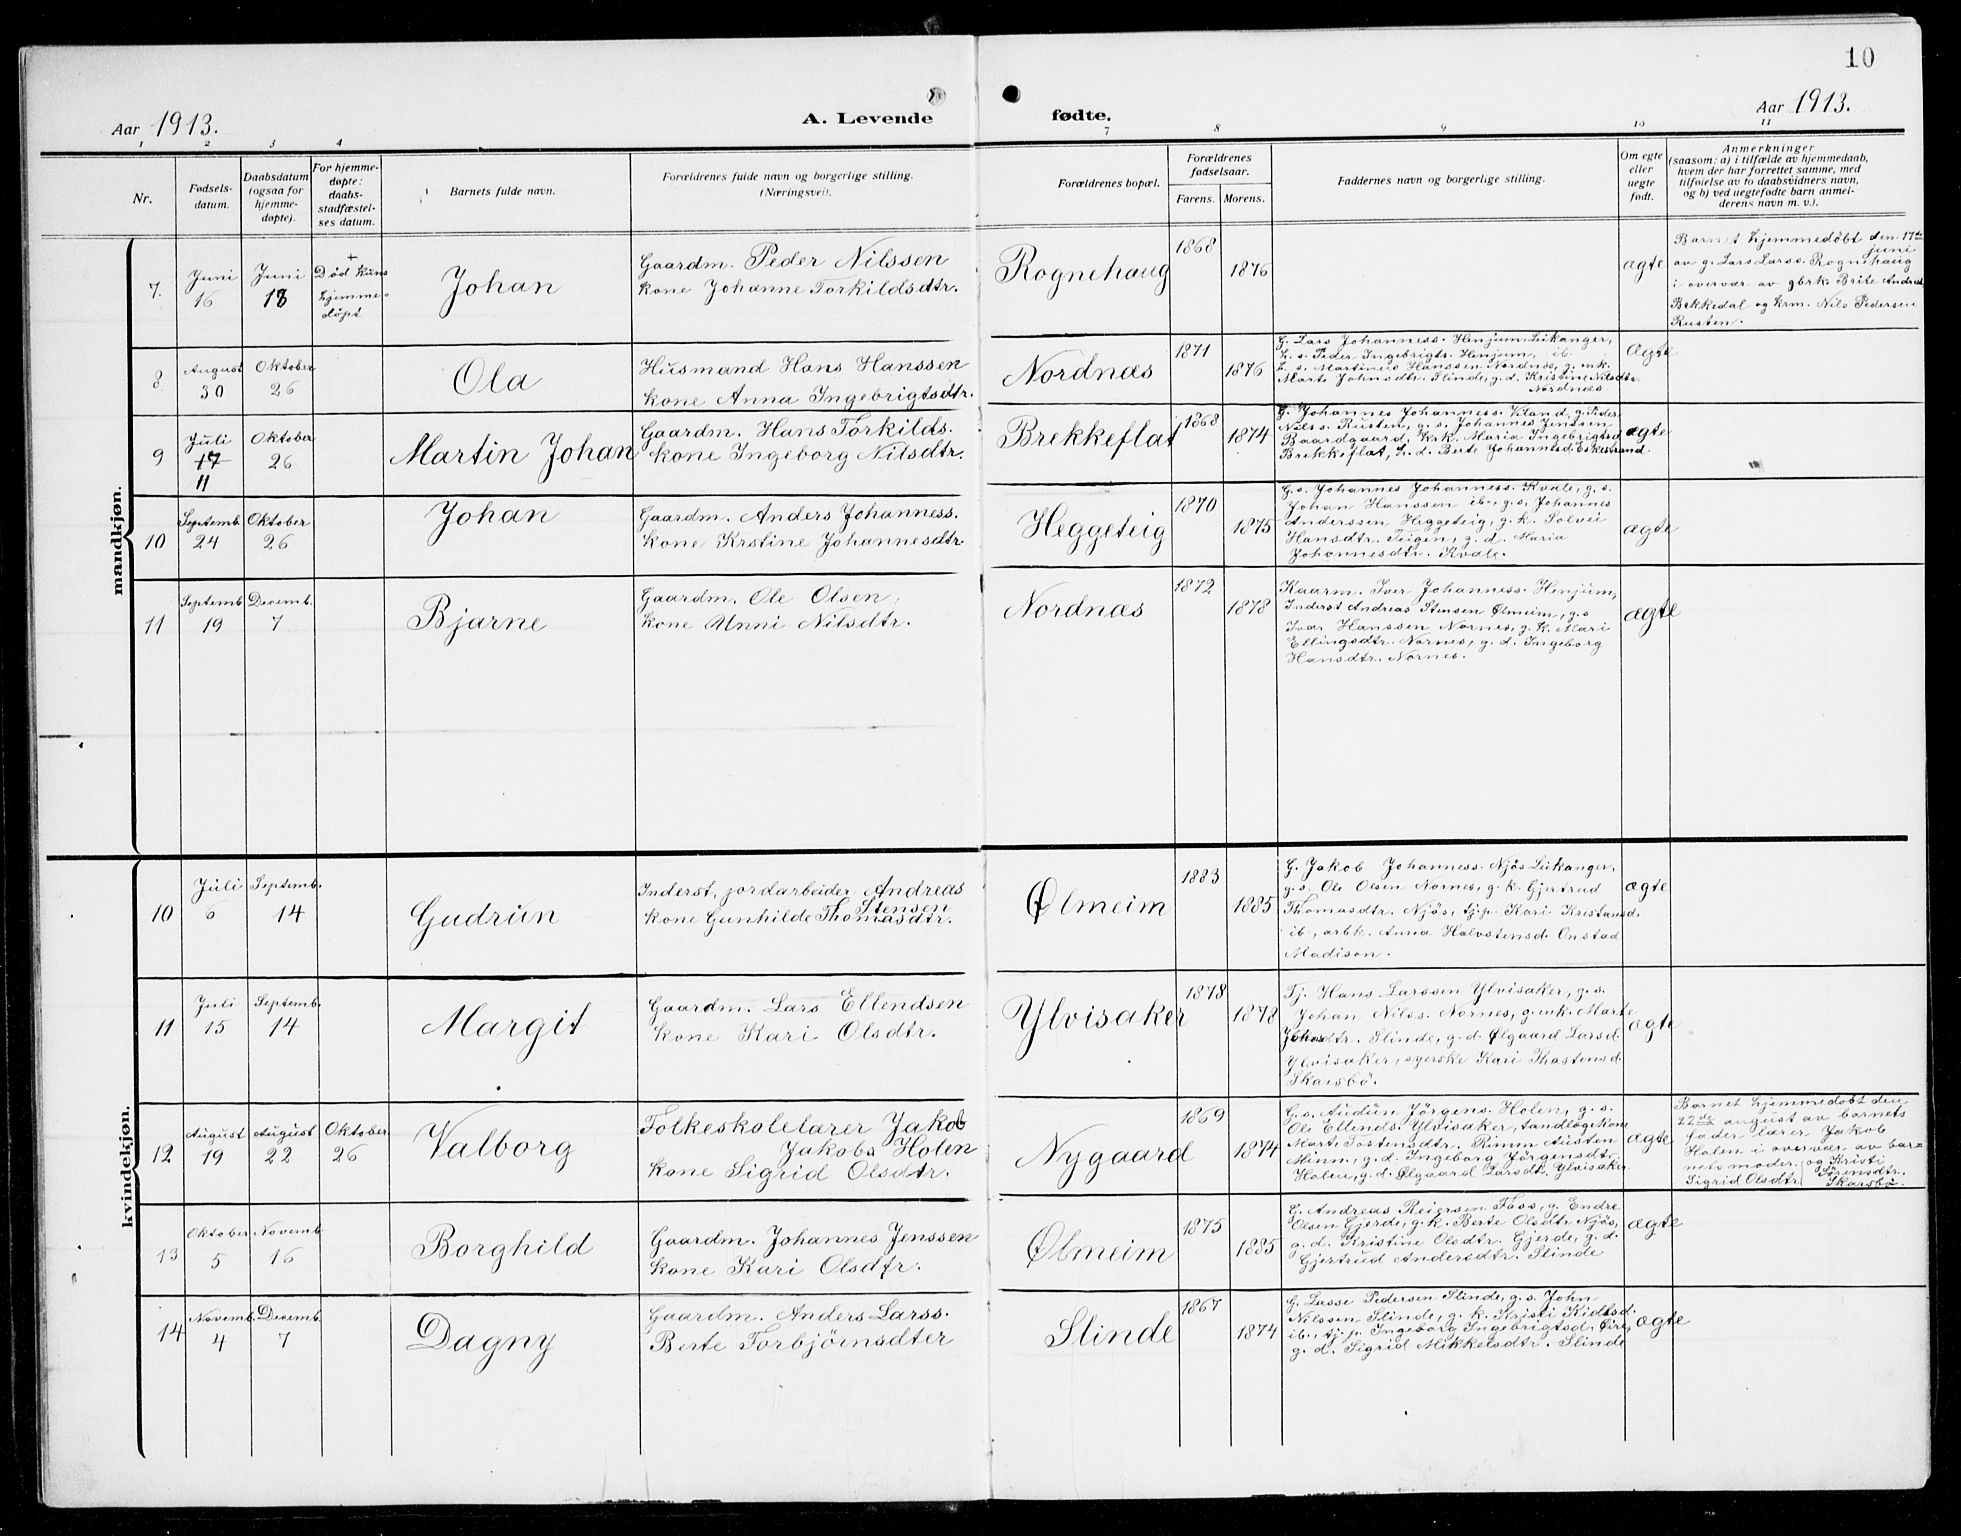 10
Aar 1913.
A. Levende
fødte.
Aar 1913.
1 2 3 4 7 8 9 10 11
Nr.
Fødsels-
datum.
Daabsdatum
(ogsaa for
hjemme-
døpte).
For hjemme-
døpte:
daabs-
stadfæstel-
ses datum.
Barnets fulde navn.
Forældrenes fulde navn og borgerlige stilling.
(Næringsvei).
Forældrenes bopæl.
Forældrenes
fødselsaar.
Farens. Morens.
Faddernes navn og borgerlige stilling.
Om egte
eller
uegte
født.
Anmerkninger
(saasom: a) i tilfælde av hjemmedaab,
hvem der har forrettet samme, med
tilføielse av to daabsvidners navn,
og b) ved uegtefødte barn anmel-
derens navn m. v.).
mandkjøn.
7.
Juni
16
Juni
18
+
Død kuns
hjemme-
døpt
Johan
Gaardm. Peder Nilssen
kone Johanne Torkildsdtr.
Rognehaug
1868
1876
ægte
Barnet hjemmedøbt den 17de
juni
av g. Lars Larss. Rognehaug
i overvær av gbrk. Brite Andrea
Bekkedal og krm. Nils Pedersen
Rusten.
8
August
30
Oktober
26
Ola
Husmand Hans Hanssen
kone Anna Ingebrigtsdtr.
Nordnæs
1871
1876
G. Lars Johanness. Henjum, Leikanger,
h. s. Peder Ingebrigtr. Henjum, ib.
h. s. Martinus Hanssen Nordnæs, g. enk.
Marte Johnsdtr. Slinde, g. d. Kristine Nilsdtr.
Nordnæs
ægte
9
Juli
17
11
Oktober
26
Martin Johan
Gaardm. Hans Torkilds.
kone Ingeborg Nilsdtr.
Brekkeflat
1868
1874
G. Johannes Johanness. Kland, g. Peder
Nils s. Rusten, g. s. Johannes Jenssen
Baardgaard, krk. Maria Ingebrigtsd
Brekkeflat, h. d. Berte Johannesd. Eskestrand.
ægte
10
Septemb.
24
Oktober
26
Johan
Gaardm. Anders Johanness.
kone Krstine Johannesdtr.
Heggeteig
1870
1875
G. s. Johannes Johanness. Kvale, g. s.
Johan Hanssen ib., g. s. Johannes
Anderssen Heggeteig, g. k. Solvei
Hansdtr. Teigen, g. d. Maria
Johannesdtr. Kvale.
ægte
11
Septemb.
19
Decemb.
7
Bjarne
Gaardm. Ole Olsen,
kone Unni Nilsdtr.
Nordnæs
1872
1878
Kaarm. Iver Johanness. Henjum,
Inderst Andreas Stensen Ølmeim, g. s.
Ivar Hanssen Nornes, g. k. Mari
Ellingsdtr. Nornes, g. d. Ingeborg
Hansdtr. Nornes.
ægte
kvindekjøn.
10
Juli
6
Septemb.
14
Gudrun
Inderst, jordarbeider Andreas
Stensen
kone Gunhilde Thomasdtr.
Ølmeim
1883
1885
G. Jakob Johanness. Njøs Leikanger,
g. s. Ole Olsen Nornes, g. k. Gjertrud
Thomasdtr. Njøs, tj.p. Kari Kristansd.
ib., arbk. Anna Halvstensd. Onstad
Madison.
ægte
11
Juli
15
Septemb.
14
Margit
Gaardm. Lars Ellendsen
kone Kari Olsdtr.
Ylvisaker
1878
1878
Tj. Hans Larssen Ylvisaker, g. s.
Johan Nilss. Nornes, g. enk. Marte
Johnsdtr. Slinde, g. d. Ølgaard Larsd.
Ylvisaker, syerske Kari Thostensd.
Skarsbø.
ægte
12
August
19
August
22
Oktober
26
Valborg
Folkeskolelærer Jakob
Jakobs Holen
kone Sigrid Olsdtr.
Nygaard
1869
1874
G. s. Audun Jørgens. Holen, g. s.
Ole Ellends. Ylvisaker, tandlægekone
Marte Tostensdtr. Rimm Austen
Minn, g. d. Ingeborg Jørgensdtr.
Holen, g. d. Ølgaard Larsdt. Ylvisaker
ægte
Barnet hjemmedøbt den
22de august av barnets
fader lærer Jakob
Holen i overvær av bar=
nets moder og Kristi
Sigrid Olsdtr. Sørensdtr.
Skarsbø.
13
Oktober
5
Novemb
16
Borghild
Gaardm. Johannes Jenssen
kone Kari Olsdtr.
Ølmeim
1875
1885
G. Andreas Reiersen Foss, g. Endre
Olsen Gjerde, g. k. Berte Olsdtr Njøs,
g. d. Kristine Olsdtr. Gjerde, g. d.
Gjertrud Andersdtr. Slinde
ægte
14
Novemb.
4
Decemb.
7
Dagny
Gaardm. Anders Larss.
Berte Torbjørnsdter
Slinde
1867
1874
G. Lasse Pedersen Slinde, g. s. John
Nilssen Slinde, g. k. Kristi Kidtsd.
ib., tj. p. Ingeborg Ingebrigtsd. Øire,
g. d. Sigrid Mikkelsdtr. Slinde
ægte